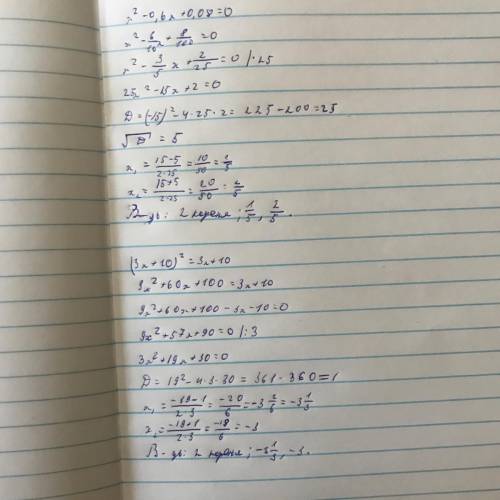 x² - 0,6x + 0,08 = 0
x² - 6/10 x + 8/100 = 0
x² - 3/5 x + 2/25 = 0 | · 25
25x² - 15x + 2 = 0
D = (-15)² - 4 · 25 · 2 = 225 - 200 = 25
√D = 5
x₁ = (15-5)/(2·25) = 10/50 = 1/5
x₂ = (15+5)/(2·25) = 20/50 = 2/5
В-дь: 2 корені; 1/5, 2/5.
(3x+10)² = 3x+10
9x² + 60x + 100 = 3x + 10
9x² + 60x + 100 - 3x - 10 = 0
9x² + 57x + 90 = 0 | : 3
3x² + 19x + 30 = 0
D = 19² - 4 · 3 · 30 = 361 - 360 = 1
x₁ = (-19-1)/(2·3) = -20/6 = -3 2/6 = -3 1/3
x₂ = (-19+1)/(2·3) = -18/6 = -3
В-дь: 2 корені; -3 1/3, -3.